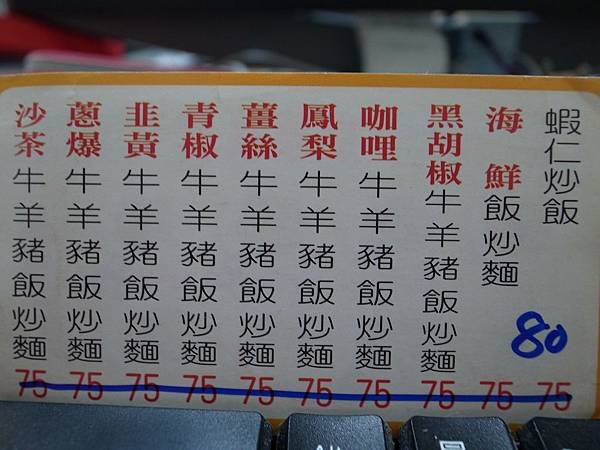 蝦仁炒飯 75
海鮮飯炒麵 75
黑胡椒牛羊豬飯炒麵 75
咖哩牛羊豬飯炒麵 75
鳳梨牛羊豬飯炒麵 75
薑絲牛羊豬飯炒麵 75
青椒牛羊豬飯炒麵 75
韭黃牛羊豬飯炒麵 75
蔥爆牛羊豬飯炒麵 75
沙茶牛羊豬飯炒麵 75
80